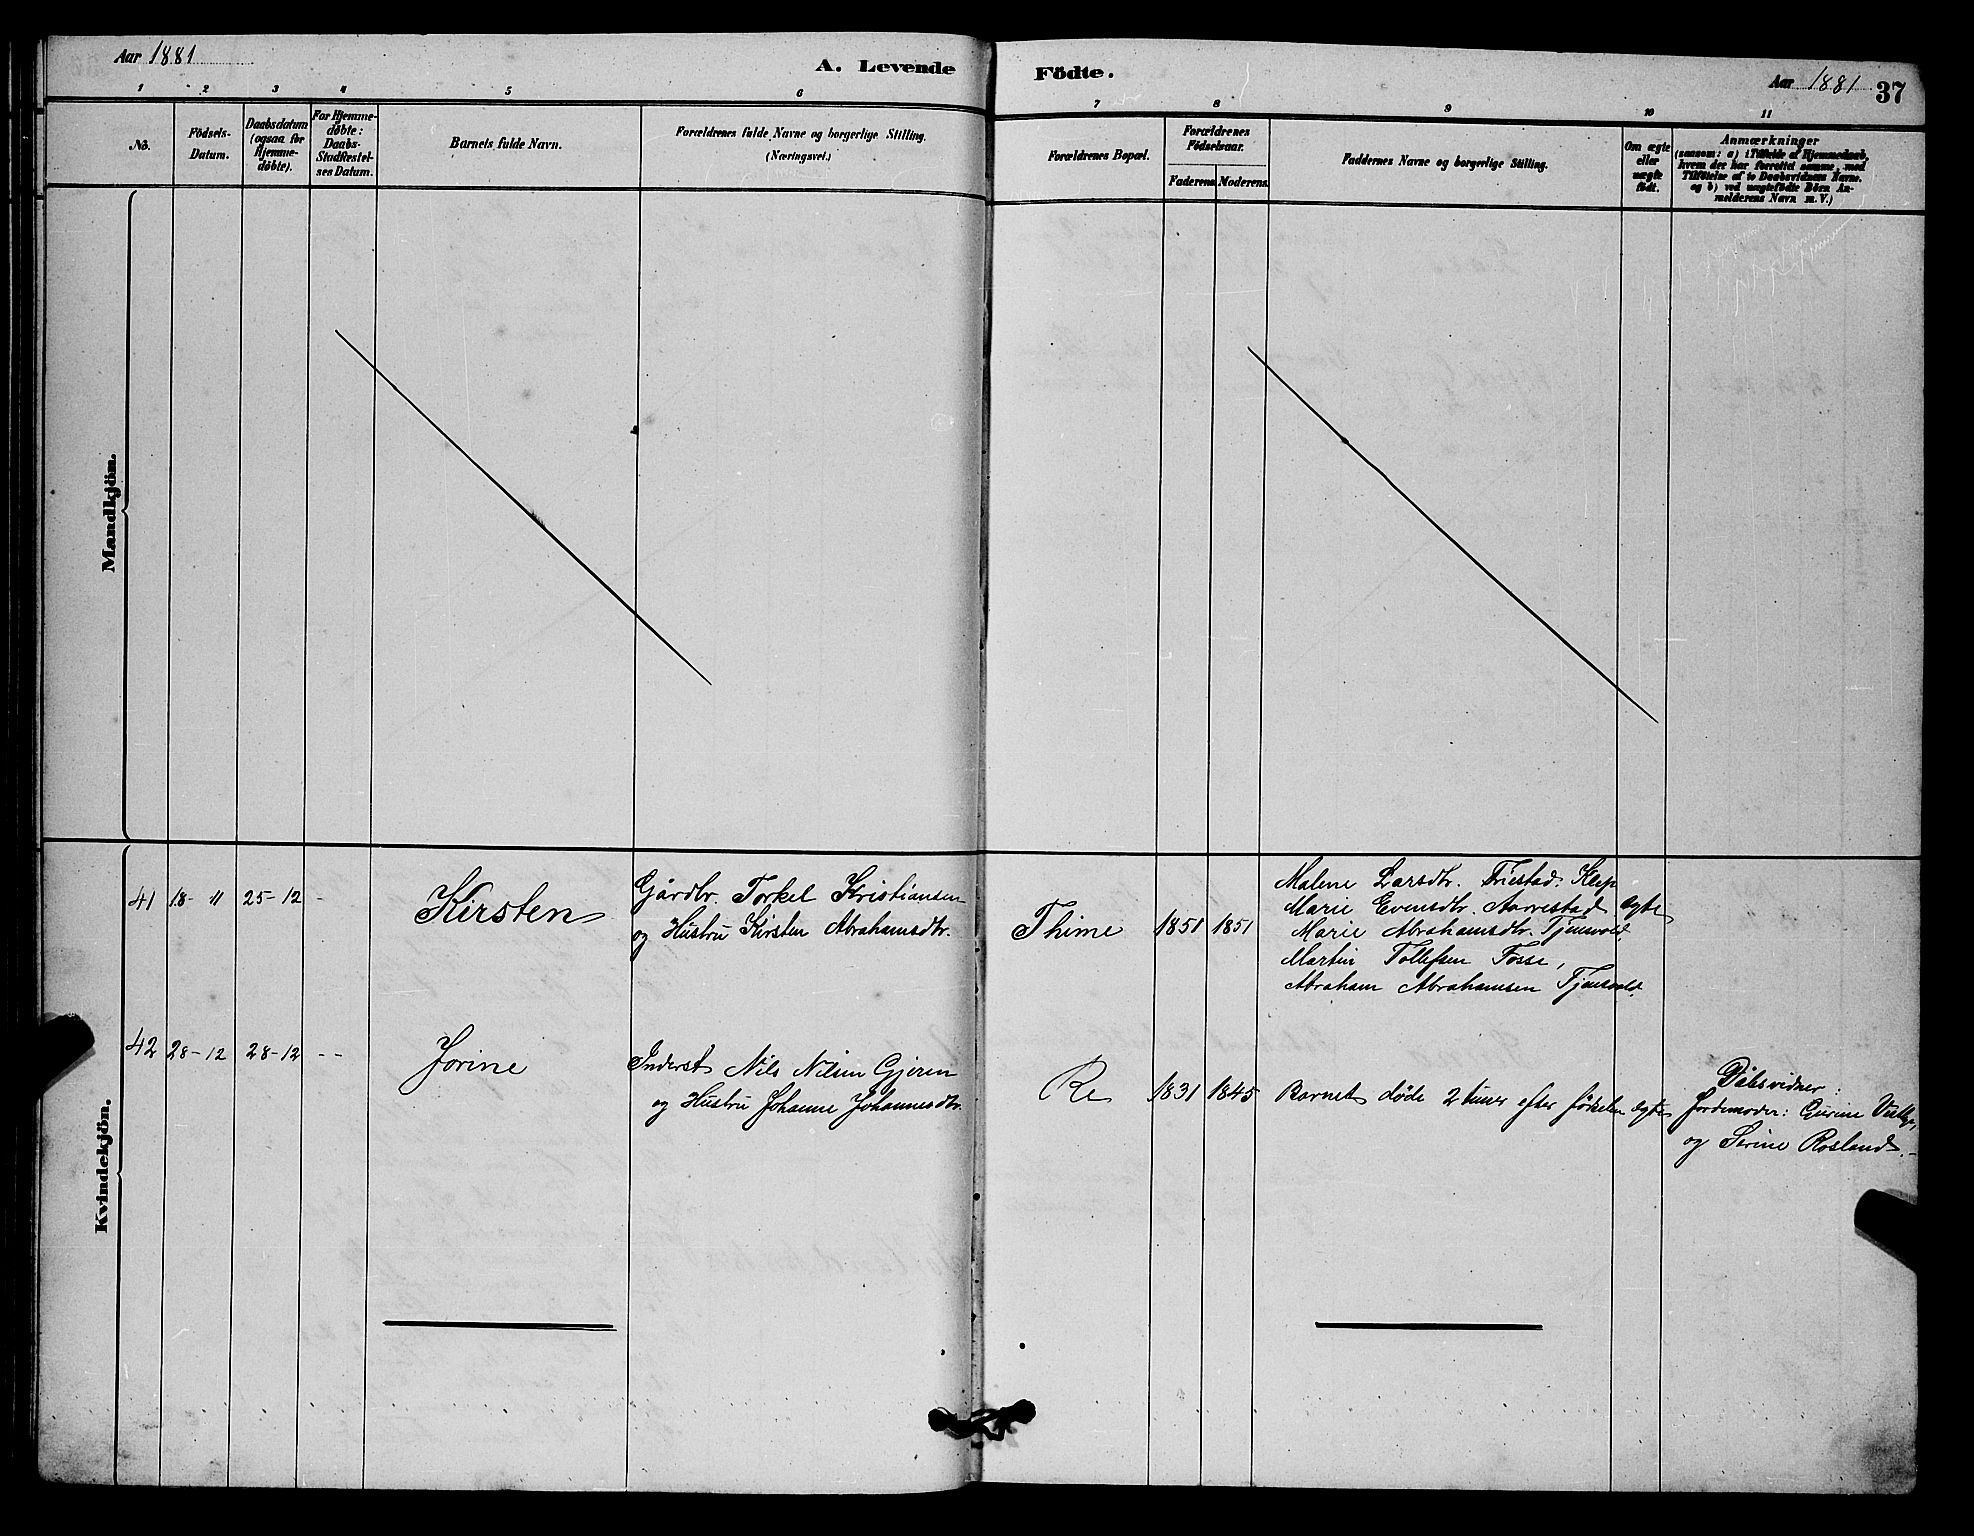 Aar 1881
A. Levende
Födte.
Aar 1881
37
1
2
3
4
5
6
7
8
9
10
11
No.
Födsels-
Datum.
Daabsdatum
(ogsaa for
Hjemme-
døbte).
For Hjemme-
døbte:
Daabs-
Stadfæstel-
ses Datum.
Barnets fulde Navn.
Forældrenes fulde Navne og borgerlige Stilling.
(Næringsvei.)
Forældrenes Bopæl.
Forældrenes
Födselsaar.
Faderens.
Moderens.
Faddernes Navne og borgerlige Stilling.
Om ægte
eller
uægte
født.
Anmærkninger
(saasom: a) i Tilfælde af Hjemmedaab,
hvem der har forrettet samme, med
Tilføielse af to Daabsvidners Navne.
og b) ved uægtefødte Börn An-
melderens Navn m. V.)
Mandkjön.
Kvindekjön.
41
18-11
25-12
-
Kirsten
Gårdbr. Torkel Kristiansen
og Hustru Kirsten Abrahamsdtr.
Thime
1851
1851
Malene Larsdtr. Friestad. Klep
Marie Evensdtr. Aarrestad
Marie Abrahamsdtr. Tjensvold,
Martin Tollefsen Fosse,
Abraham Abrahamsen Tjensvold.
ægte
42
28-12
28-12
--
Jorine
Inderst Nils Nilsen Gjeren
og Hustru Johanne Johannesdtr.
Re
1831
1845
Barnet døde 2 timer efter fødselen
ægte
Dåbsvidner:
Jordemoder: Gurine
og Serine Rosland.-